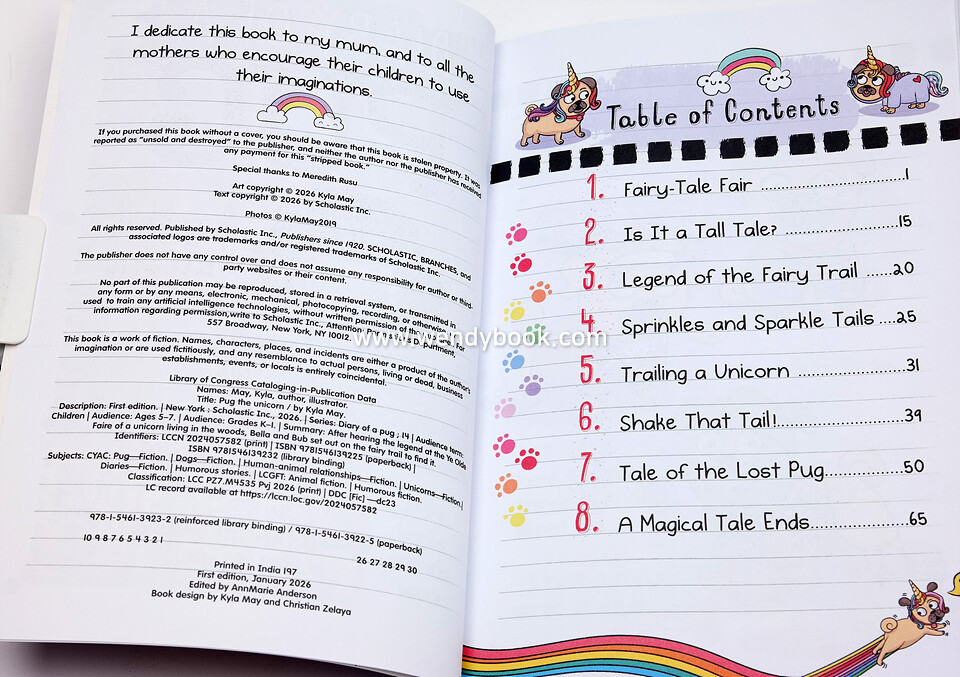 I dedicate this book to my mum, and to all the
mothers who encourage their children to use
their imaginations.
If you purchased this book without a cover, you should be aware that this book is stolen property. It was
reported as "unsold and destroyed" to the publisher, and neither the author nor the publisher has received
any payment for this "stripped book."
Special thanks to Meredith Rusu
Art copyright © 2026 Kyla May
Text copyright © 2026 by Scholastic Inc.
Photos © KylaMay2019
All rights reserved. Published by Scholastic Inc., Publishers since 1920. SCHOLASTIC, BRANCHES, and
associated logos are trademarks and/or registered trademarks of Scholastic Inc.
The publisher does not have any control over and does not assume any responsibility for author or third-
party websites or their content.
No part of this publication may be reproduced, stored in a retrieval system, or transmitted in
any form or by any means, electronic, mechanical, photocopying, recording, or otherwise, or
used to train any artificial intelligence technologies, without written permission of the publisher. For
information regarding permission, write to Scholastic Inc., Attention: Permissions Department,
557 Broadway, New York, NY 10012.
This book is a work of fiction. Names, characters, places, and incidents are either a product of the author's
imagination or are used fictitiously, and any resemblance to actual persons, living or dead, business
establishments, events, or locals is entirely coincidental.
Library of Congress Cataloging-in-Publication Data
Names: May, Kyla, author, illustrator.
Title: Pug the unicorn / by Kyla May.
Description: First edition. | New York : Scholastic Inc., 2026. | Series: Diary of a pug ; 14 | Audience term:
Children | Audience: Ages 5–7. | Audience: Grades K–1. | Summary: After hearing the legend at the Ye Olde
Faire of a unicorn living in the woods, Bella and Bub set out on the fairy trail to find it.
Identifiers: LCCN 2024057582 (print) | ISBN 9781546139225 (paperback) |
ISBN 9781546139232 (library binding)
Subjects: CYAC: Pug—Fiction. | Dogs—Fiction. | Human-animal relationships—Fiction. | Unicorns—Fiction. |
Diaries—Fiction. | Humorous stories. | LCGFT: Animal fiction. | Humorous fiction.
Classification: LCC PZ7.M4535 Pvj 2026 (print) | DDC [Fic] —dc23
LC record available at https://lccn.loc.gov/2024057582
978-1-5461-3923-2 (reinforced library binding) / 978-1-5461-3922-5 (paperback)
10 9 8 7 6 5 4 3 2 1
26 27 28 29 30
Printed in India 197
First edition, January 2026
Edited by AnnMarie Anderson
Book design by Kyla May and Christian Zelaya
Table of Contents
1. Fairy-Tale Fair ........ 1
2. Is It a Tall Tale? ........ 15
3. Legend of the Fairy Trail ...... 20
4. Sprinkles and Sparkle Tails .... 25
5. Trailing a Unicorn ........ 31
6. Shake That Tail! ........ 39
7. Tale of the Lost Pug ........ 50
8. A Magical Tale Ends ........ 65
www.twendybook.com